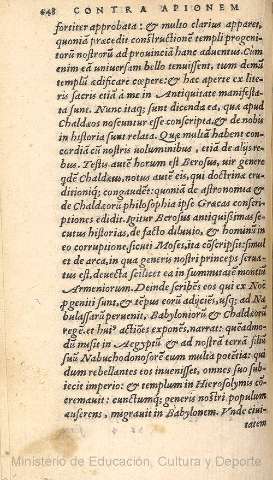 648 CONTRA APIONEM
fortiter approbata: & multo clarius apparet,
quoniā præcedit constructionē templi progeni-
torū nostrorū ad prouinciā hanc aduentus. Cam
enim eā uniuersam bello tenuissent, tum demū
templū edificare cœpere: & hac aperte ex lite-
ris sacris etiā à me in Antiquitate manifesta-
ta sunt. Nunc itaq; sunt dicenda ea, quæ apud
Chaldæos noscuntur esse conscripta, & de nobis
in historia sunt relata. Quæ multā habent con-
cordiā cū nostris voluminibus, etiā de alijs re-
bus. Testis autē horum est Berosus, uir genere
qdē Chaldæus, notus autē eis, qui doctrinæ eru-
ditioniq; congaudēt: quoniā de astronomia &
de Chaldæorū philosophia ipse Græcas conscri-
ptiones edidit. Igitur Berosus antiquissimas se-
cutus historias, de facto diluuio, & hominū in
eo corruptione, sicut Moses, ita cōscripsit: simul
et de arca, in qua generis nostri princeps serua-
tus est, deuecta scilicet ea in summitatē montiū
Armeniorum. Deinde scribēs eos qui ex Noë
pgeniti sunt, & tēpus eorū adijciēs, usq; ad Na
bulassarū peruenit, Babyloniorū & Chaldæorū
regē: et hui9 actiōes exponēs, narrat: quēadmo-
dū misit in Aegyptū & ad nostrā terrā filiū
suū Nabuchodonosorē cum multa potētia: qui
dum rebellantes eos inuenisset, omnes suo sub-
iecit imperio: & templum in Hierosolymis co-
cremauit: cunctumq; generis nostri populum
auferens, migrauit in Babylonem. Vnde ciui-
tatem
Ministerio de Educación, Cultura y Deporte